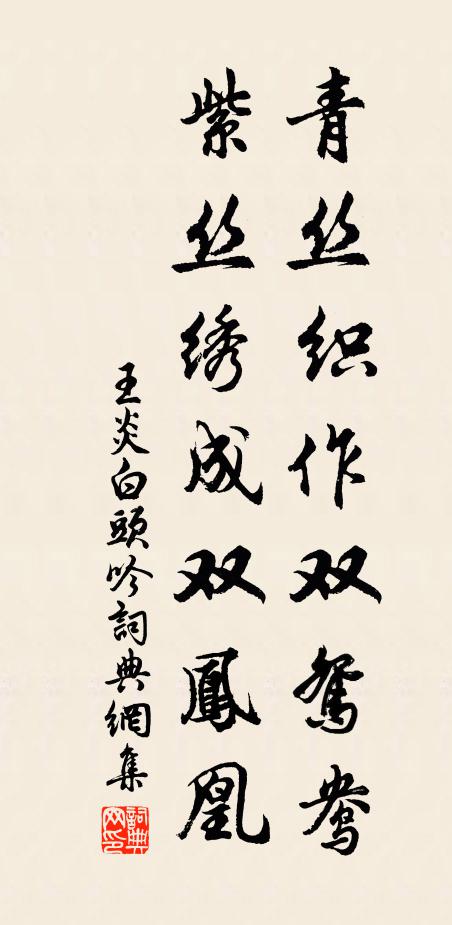 青丝织作双鸳鸯
紫丝绣成双鳳凰
王炎白頭吟詞典網集
詞典网印